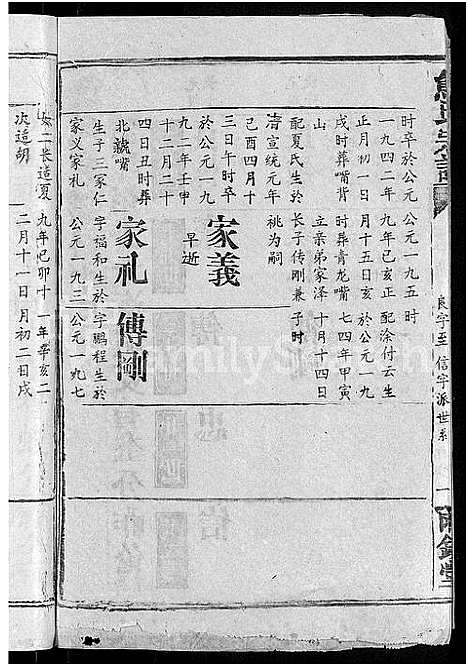 良字至信字派世系
一
时卒於公元
一九四二年
正月初一日
戌时葬嘴背
山
配夏氏生於
清宣统元年
己酉四月十
三日午时卒
於公元一九
九二年壬申
十二月二十
四日丑时葬
嘴
生子三家仁
家义家礼
女二长适夏
次适胡
公元一九五
九年己亥正
月十五日亥
时葬青龙嘴
立亲弟家泽
长子传刚兼
祧为嗣
家義
早逝
家礼
字福和生於
公元一九三
九年己卯十
二月十一日
时
配涂付云生
於公元一九
七四年甲寅
十月十四日
子时
傳剛
字鹏程生於
公元一九七
一年辛亥二
月初二日戌